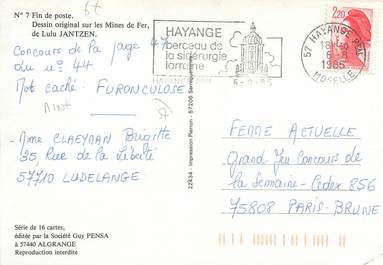 N° 7 Fin de poste.
Dessin original sur les Mines de Fer,
de Lulu JANTZEN.
Concours de la page 47
du n° 44
Mot caché : FURONCULOSE
Mme CLAEYMAN Brigitte
35, Rue de la Liberté
57710 LUDELANGE
Série de 16 cartes,
éditée par la Société Guy PENSA
à 57440 ALGRANGE
Reproduction interdite
22434 - Impression Pierron - 57206 Sarreguemines
HAYANGE
berceau de
la sidérurgie
lorraine
57 HAYANGE
18H
1985
MOSELLE
2,20
FEMME ACTUELLE
Grand Jeu Concours de
la Semaine - Cedex 856
75808 PARIS-BRUNE